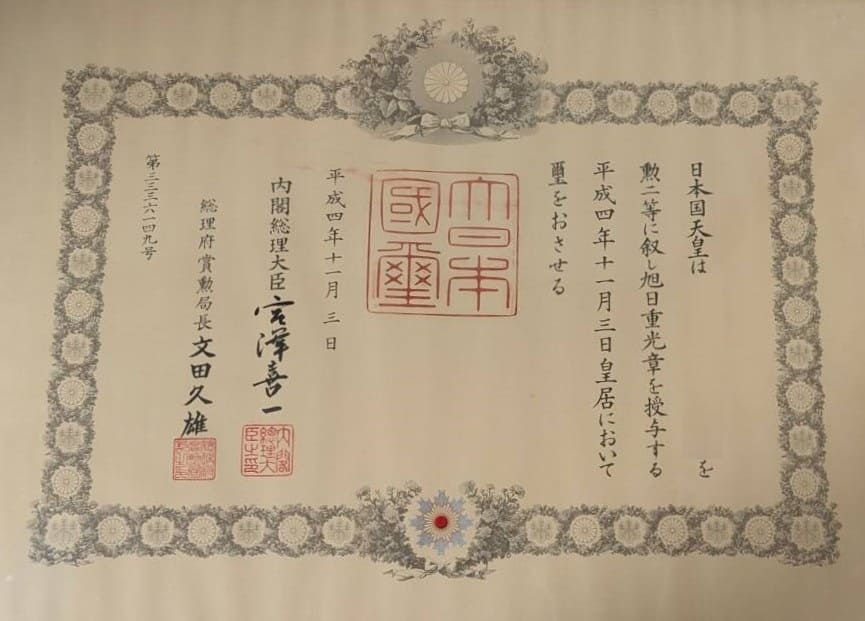 日本国天皇は を
勲二等に叙し旭日重光章を授与する
平成四年十一月三日皇居において
璽をおさせる
大日本
國璽
平成四年十一月三日
内閣総理大臣 宮澤喜一
内閣
總理大
臣之印
総理府賞勲局長 文田久雄
第三三六一四九号